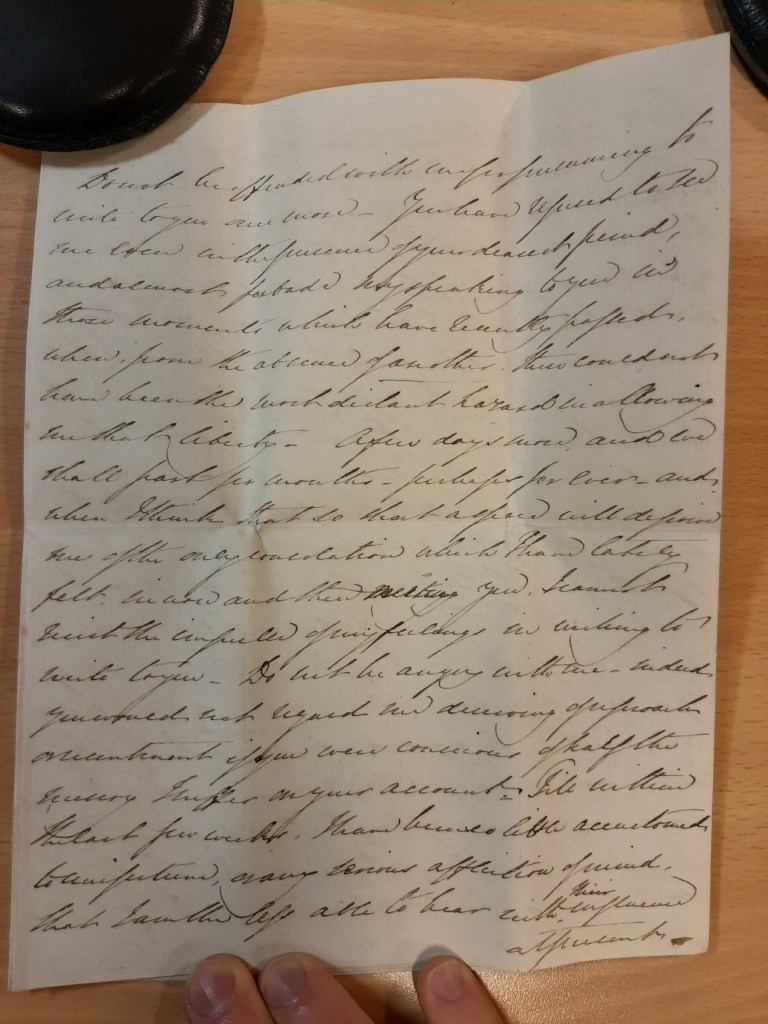 Do not be offended with me for presuming to
write to you once more – You have refused to see
me even in the presence of your dearest friend,
and almost forbade my speaking to you in
those moments which have recently passed,
when, from the absence of another, there could not
have been the most distant hazard in allowing
me that liberty – A few days more, and we
shall part for months – perhaps for ever – and
when I think that so short a space will deprive
me of the only consolation which I have lately
felt, in now and then meeting you, I cannot
resist the impulse of my feelings in wishing to
write to you – Do not be angry with me – indeed
you would not regard me deserving of reproach
or resentment if you were conscious of half the
misery I suffer on your account – Till within
the last few weeks, I have been so little accustomed
to misfortune, or any serious affliction of mind,
that I am the less able to bear with their influence
at present –